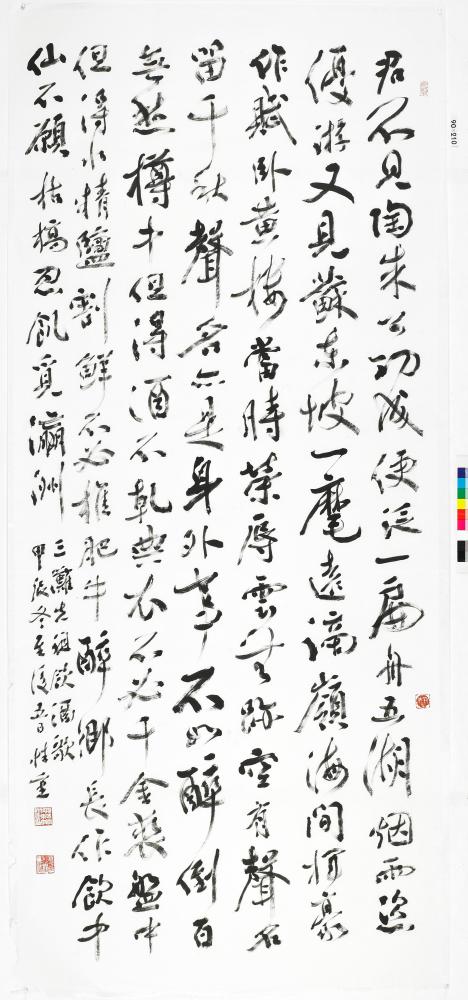 君不見陶朱公功成便從一扁舟五湖烟雨恣
優游又見蘇東坡一麾遠謫嶺海間揮毫
作賦卧黄樓當時榮辱雲無跡空有聲名
留千秋聲名亦是身外事不如醉倒百
無愁樽中但得酒不乾典衣不必千金裘盤中
但得水精鹽割鮮不必椎肥牛醉鄉長作飲中
仙不願枯槁忍飢覓瀛洲
三離先祖飲酒歌
甲辰冬至後吾
90-210